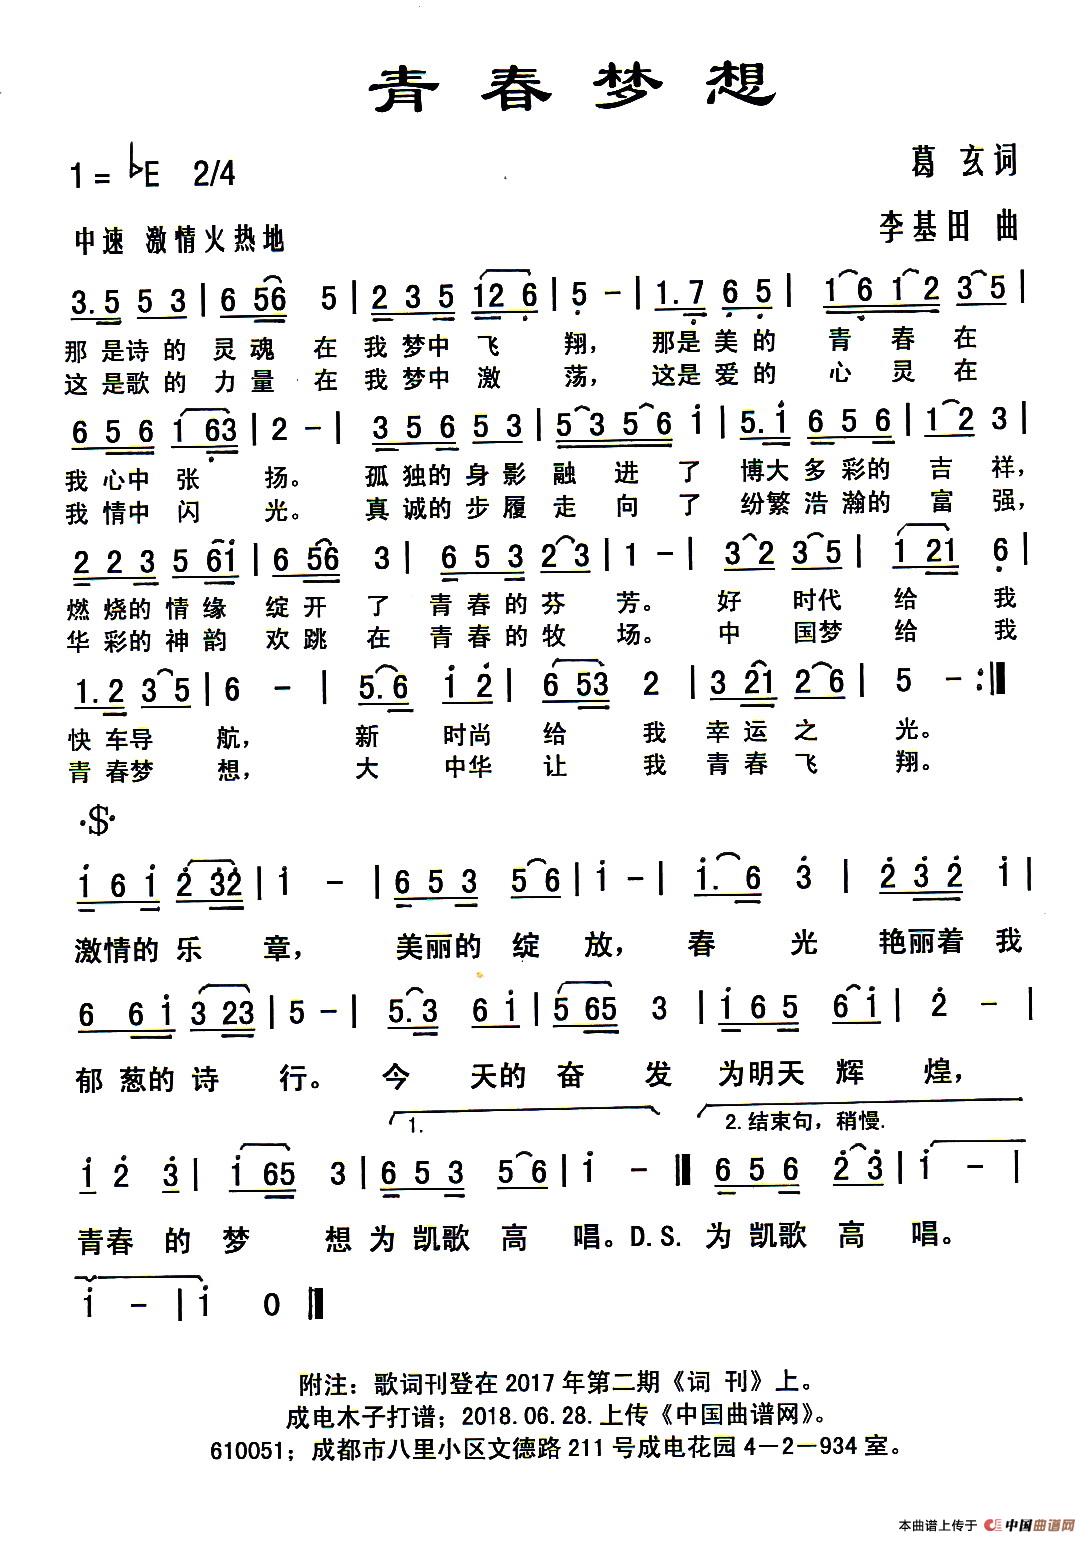 青春梦想
1=♭E 2/4
葛 玄词
中速 激情火热地
李基田 曲
3.5 5 3 | 6 56 5 | 2 3 5 12 6 | 5 - | 1.7 6 5 | 1 6 1 2 3 5 |
那是诗的 灵魂 在 我 梦中 飞 翔， 那是 美的 青 春 在
这是歌的 力量 在 我 梦中 激 荡， 这是 爱的 心 灵 在
6 5 6 1 63 | 2 - | 3 5 6 5 3 | 5 3 5 6 i | 5.i 6 5 6 | 1 2 3 |
我 心中 张 扬。 孤 独的 身 影 融 进 了 博大 多 彩的 吉 祥，
我 情中 闪 光。 真 诚的 步 履 走 向 了 纷繁 浩 瀚的 富 强，
2 2 3 5 6i | 6 56 3 | 6 5 3 2 3 | 1 - | 3 2 3 5 | 1 21 6 |
燃 烧的 情 缘 绽 开 了 青 春 的 芬 芳。 好 时代 给 我
华 彩的 神 韵 欢 跳 在 青 春 的 牧 场。 中 国梦 给 我
1.2 3 5 | 6 - | 5.6 i 2 | 6 53 2 | 3 21 2 6 | 5 - :||
快 车导 航， 新 时尚 给 我 幸 运 之 光。
青 春梦 想， 大 中华 让 我 青 春 飞 翔。
·$·
i 6 i 2 32 | i - | 6 5 3 5 6 | i - | i. 6 3 | 2 3 2 i |
激情的 乐 章， 美丽的 绽 放， 春 光 艳丽着 我
6 6 i 3 23 | 5 - | 5.3 6 i | 5 65 3 | i 6 5 6 i | 2 - |
郁 葱的 诗 行。 今 天的 奋 发 为明天 辉 煌，
1. 2.结束句，稍慢.
i 2 3 | i 65 3 | 6 5 3 5 6 | i - || 6 5 6 2 3 | i - |
青春 的 梦 想 为 凯歌 高 唱。D.S. 为 凯歌 高 唱。
i - | i 0 ||
附注：歌词刊登在 2017 年第二期《词 刊》上。
成电木子打谱；2018.06.28.上传《中国曲谱网》。
610051；成都市八里小区文德路 211 号成电花园 4－2－934 室。
本曲谱上传于 中国曲谱网